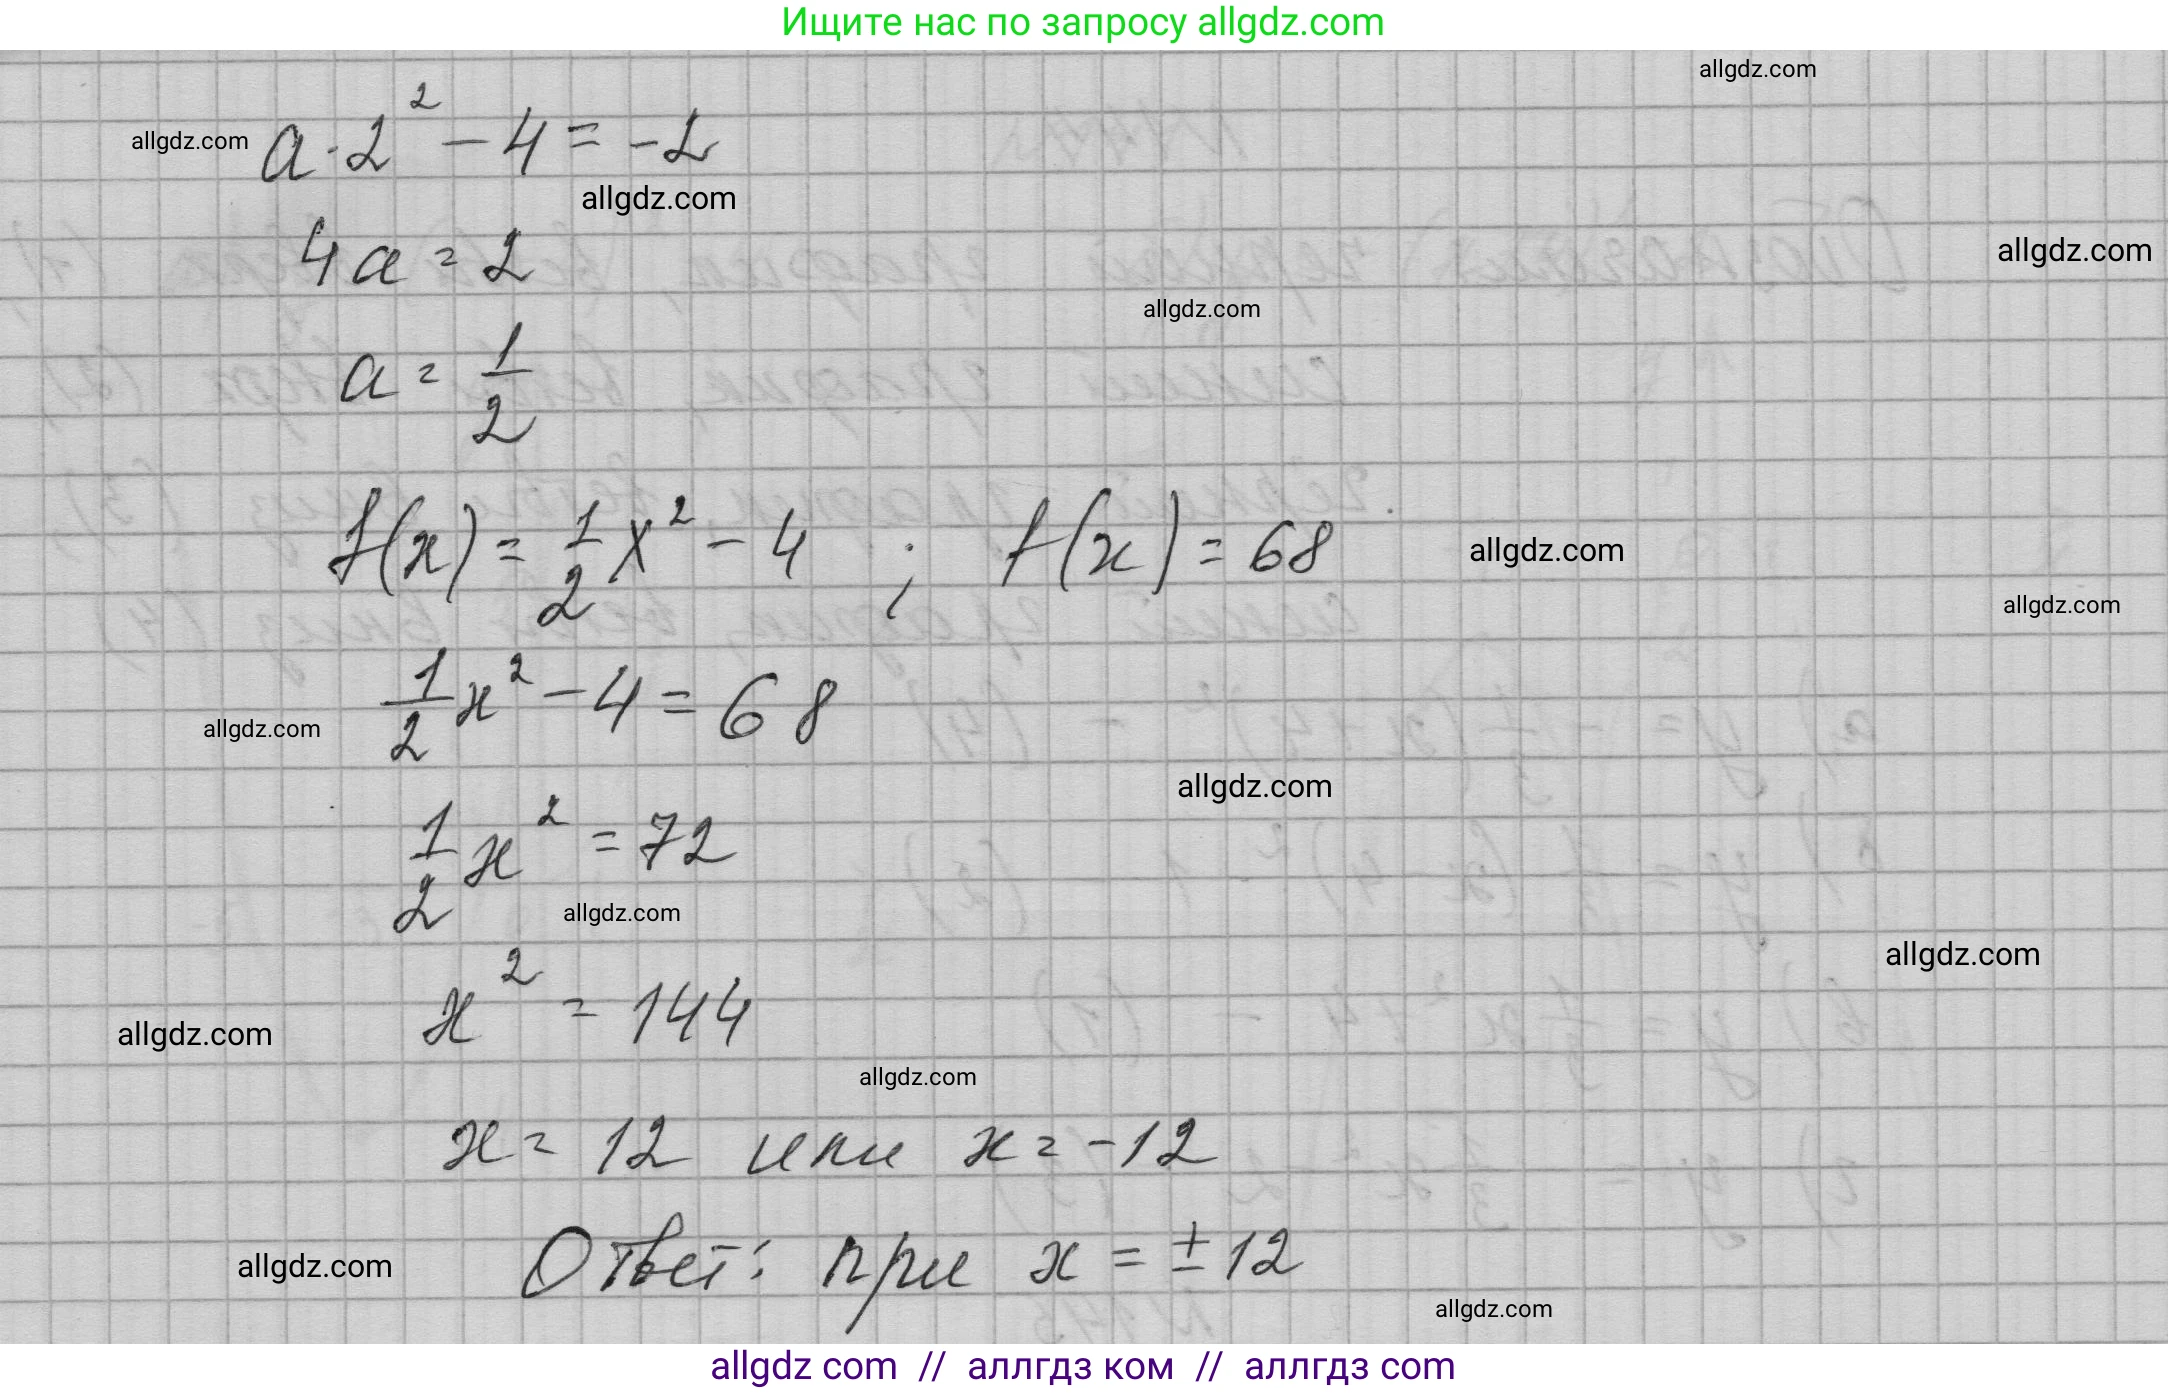 Ищите нас по запросу allgdz.com
allgdz.com
allgdz.com a · 2² - 4 = -2
allgdz.com
4a = 2
allgdz.com
allgdz.com
a = 1/2
f(x) = 1/2 x² - 4 ; f(x) = 68
allgdz.com
allgdz.com
1/2 x² - 4 = 68
allgdz.com
allgdz.com
1/2 x² = 72
allgdz.com
allgdz.com
x² = 144
allgdz.com
allgdz.com
x = 12 или x = -12
Ответ: при x = ± 12
allgdz.com
allgdz.com
allgdz com // аллгдз ком // аллгдз com